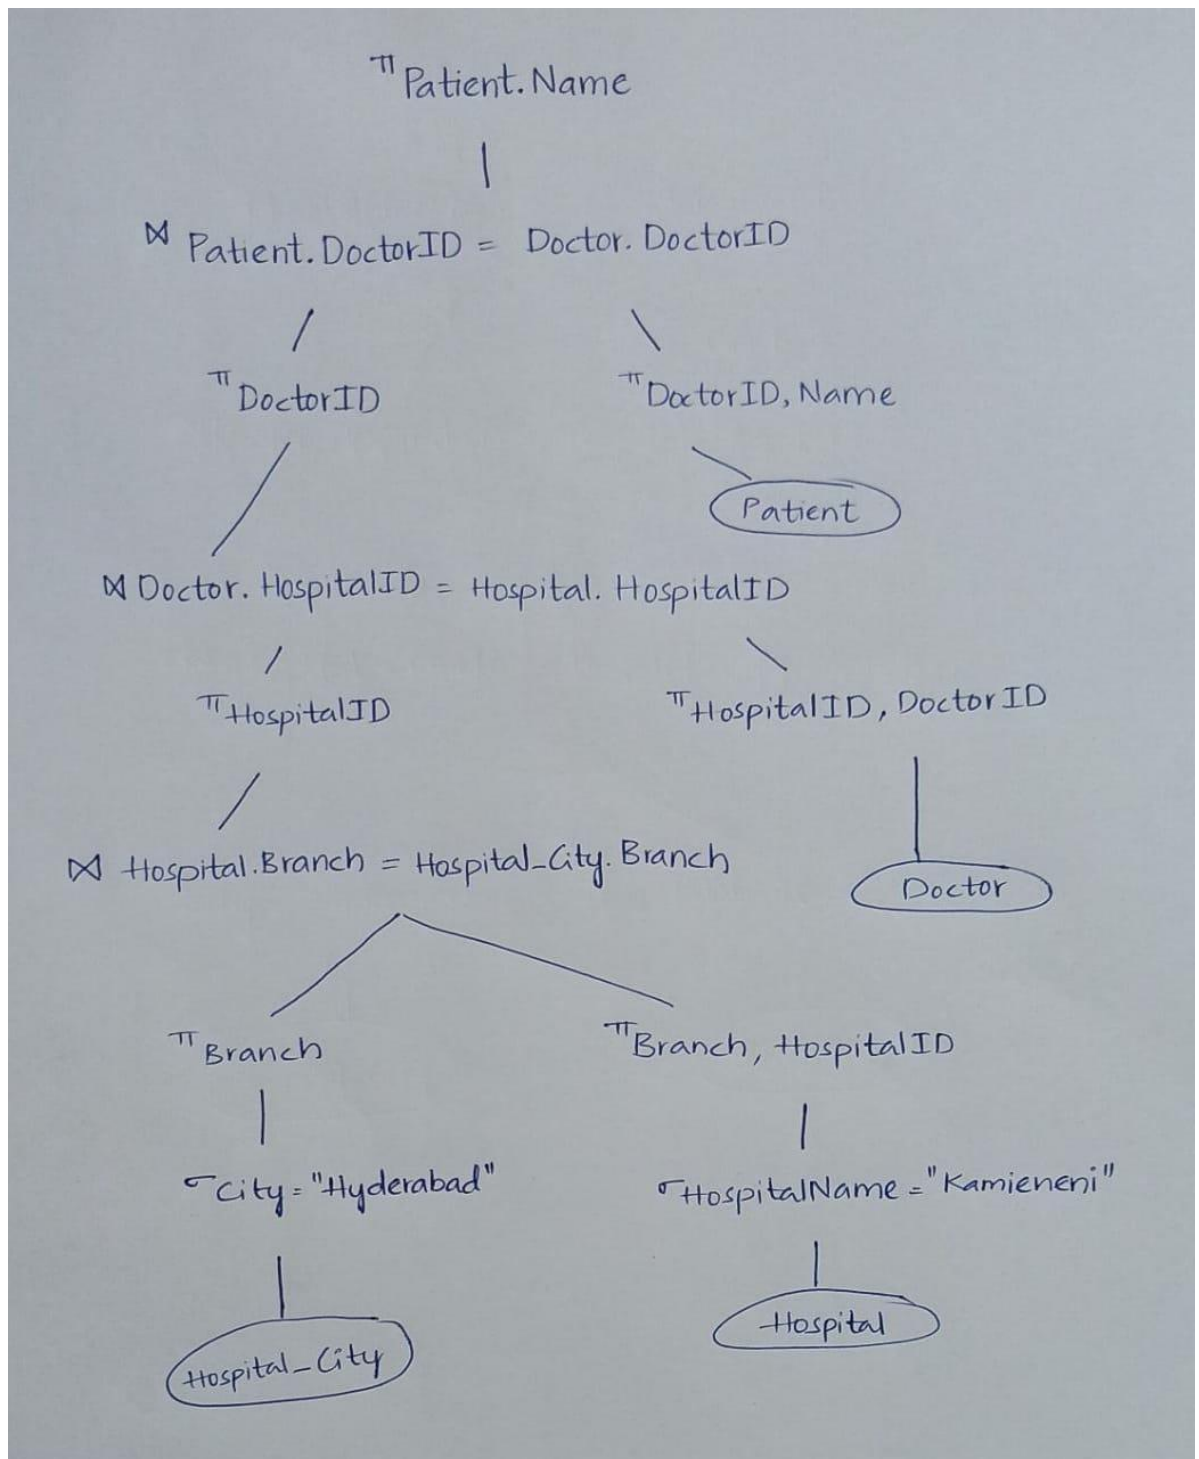 π Patient.Name
⋈ Patient.DoctorID = Doctor.DoctorID
π DoctorID
π DoctorID, Name
Patient
⋈ Doctor.HospitalID = Hospital.HospitalID
π HospitalID
π HospitalID, DoctorID
⋈ Hospital.Branch = Hospital_City.Branch
Doctor
π Branch
π Branch, HospitalID
σ City = "Hyderabad"
σ HospitalName = "Kamieneni"
Hospital
Hospital_City